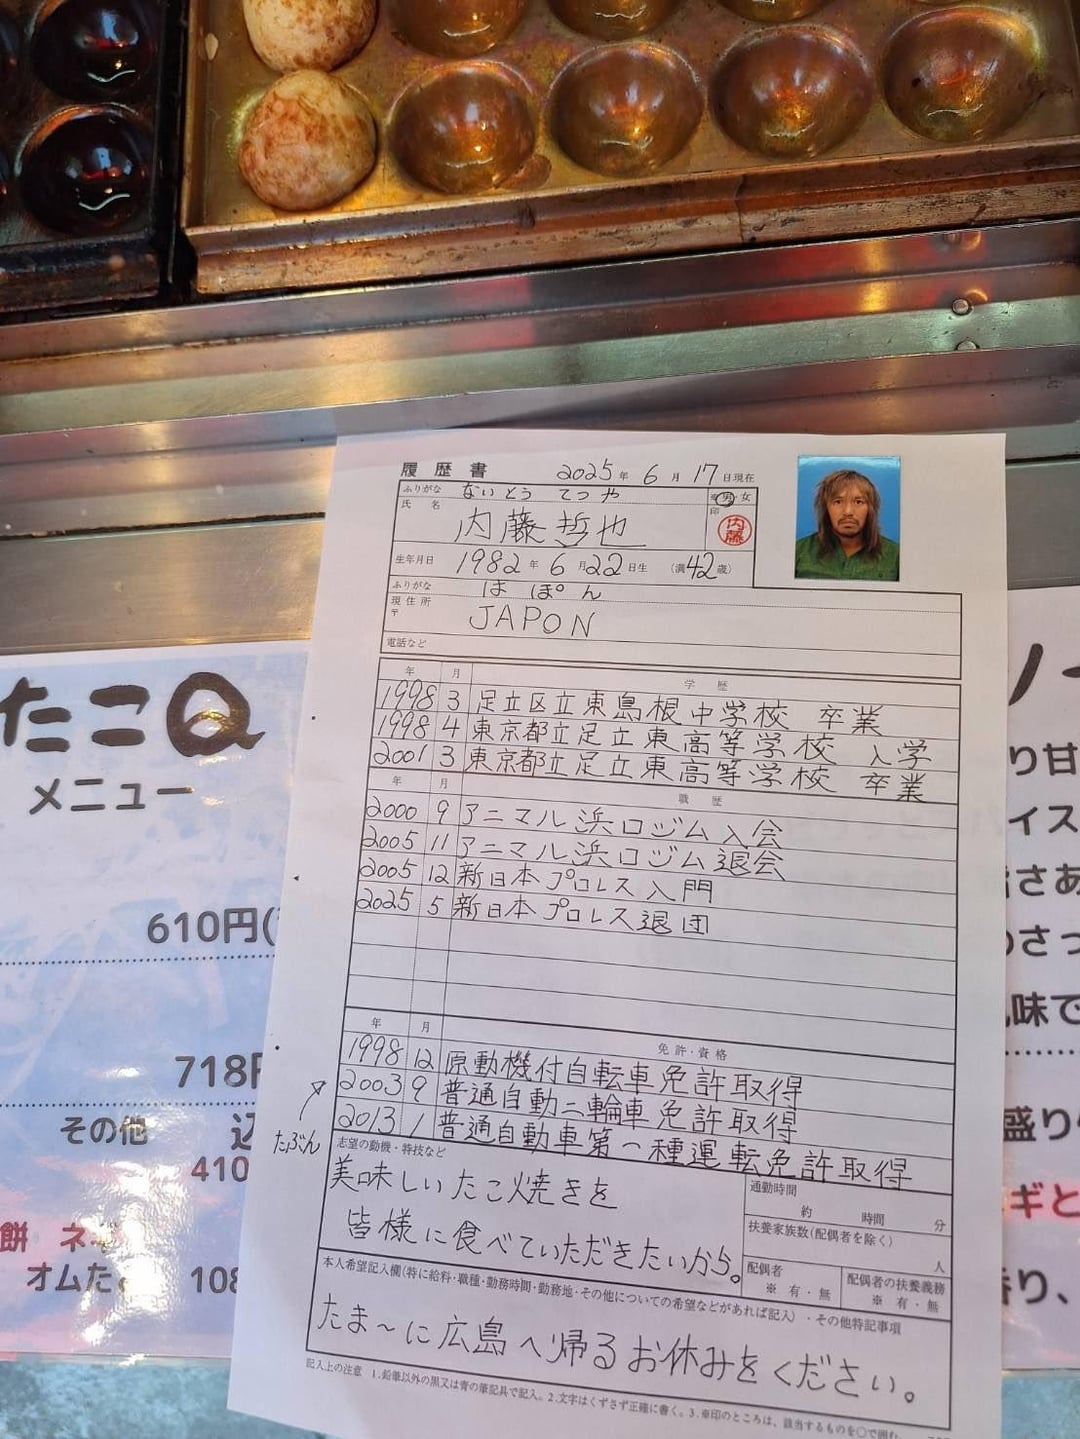 履歴書 2025年 6月 17日現在
ふりがな ないとう てつや
※ 男・女
氏 名 内藤哲也
印 内藤
生年月日 1982年 6月22日生 (満42歳)
ふりがな はぽん
現住所
〒 JAPON
電話など
年 月 学 歴
1998 3 足立区立東島根中学校 卒業
1998 4 東京都立足立東高等学校 入学
2001 3 東京都立足立東高等学校 卒業
年 月 職 歴
2000 9 アニマル浜口ジム入会
2005 11 アニマル浜口ジム退会
2005 12 新日本プロレス入門
2025 5 新日本プロレス退団
年 月 免許・資格
1998 12 原動機付自転車免許取得
2003 9 普通自動二輪車免許取得
2013 1 普通自動車第一種運転免許取得
たぶん
志望の動機・特技など
美味しいたこ焼きを
皆様に食べていただきたいから。
通勤時間
約 時間 分
扶養家族数(配偶者を除く)
人
配偶者
※ 有・無
配偶者の扶養義務
※ 有・無
本人希望記入欄(特に給料・職種・勤務時間・勤務地・その他についての希望などがあれば記入)・その他特記事項
たま〜に広島へ帰るお休みをください。
記入上の注意 1.鉛筆以外の黒又は青の筆記具で記入。2.文字はくずさず正確に書く。3.※印のところは、該当するものを○で囲む。
たこQ
メニュー
610円(
718円
その他 込
410
餅 ネギ
オムた
108
り甘
イス
さあ
のさっ
味で
盛り
ギと
り、